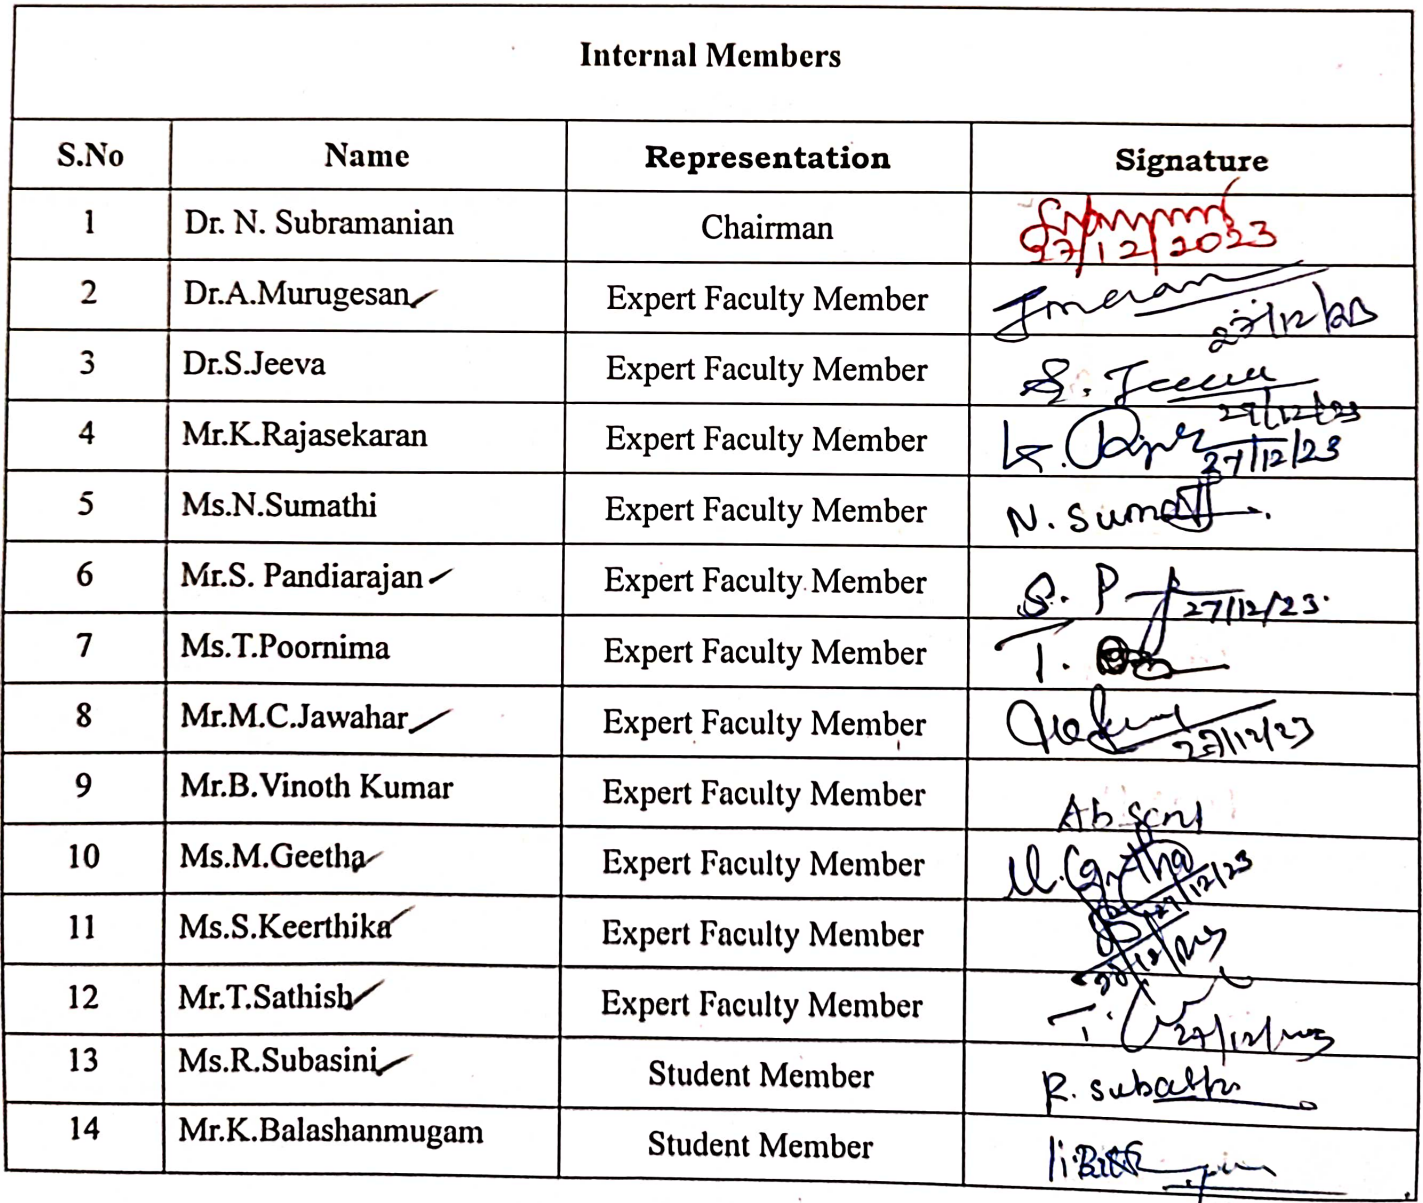 Internal Members
S.No Name Representation Signature
1 Dr. N. Subramanian Chairman
27/12/2023
2 Dr.A.Murugesan Expert Faculty Member
27/12/23
3 Dr.S.Jeeva Expert Faculty Member S. Jeeva
27/12/23
4 Mr.K.Rajasekaran Expert Faculty Member K.
27/12/23
5 Ms.N.Sumathi Expert Faculty Member N. Sumathi
6 Mr.S. Pandiarajan Expert Faculty Member S. P 27/12/23
7 Ms.T.Poornima Expert Faculty Member T.
8 Mr.M.C.Jawahar Expert Faculty Member
27/12/23
9 Mr.B.Vinoth Kumar Expert Faculty Member Absent
10 Ms.M.Geetha Expert Faculty Member M. Geetha
27/12/23
11 Ms.S.Keerthika Expert Faculty Member
12 Mr.T.Sathish Expert Faculty Member T.
13 Ms.R.Subasini Student Member R.
14 Mr.K.Balashanmugam Student Member